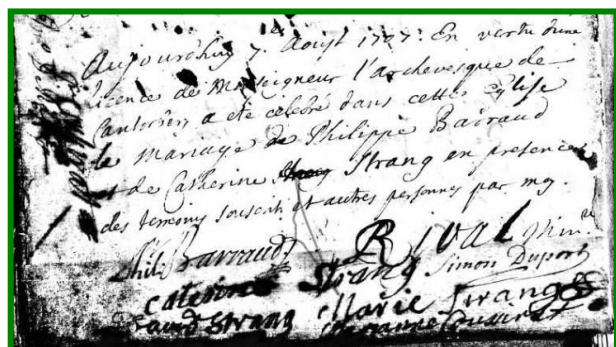 Aujourdhuy 7e Aoust 1727. En vertu dune
licence de Monseigneur l'archevesque de
Cantorbery a eté celebré dans cette Eglise
le mariage de Philippe Barraud
et de Catherine Strang en presence
des temoins souscrit et autres personnes par moy.
Phil. Barraud RIVAL Minre
Caterine Strang Simon Duport
David Strang Marie Strang
Marianne